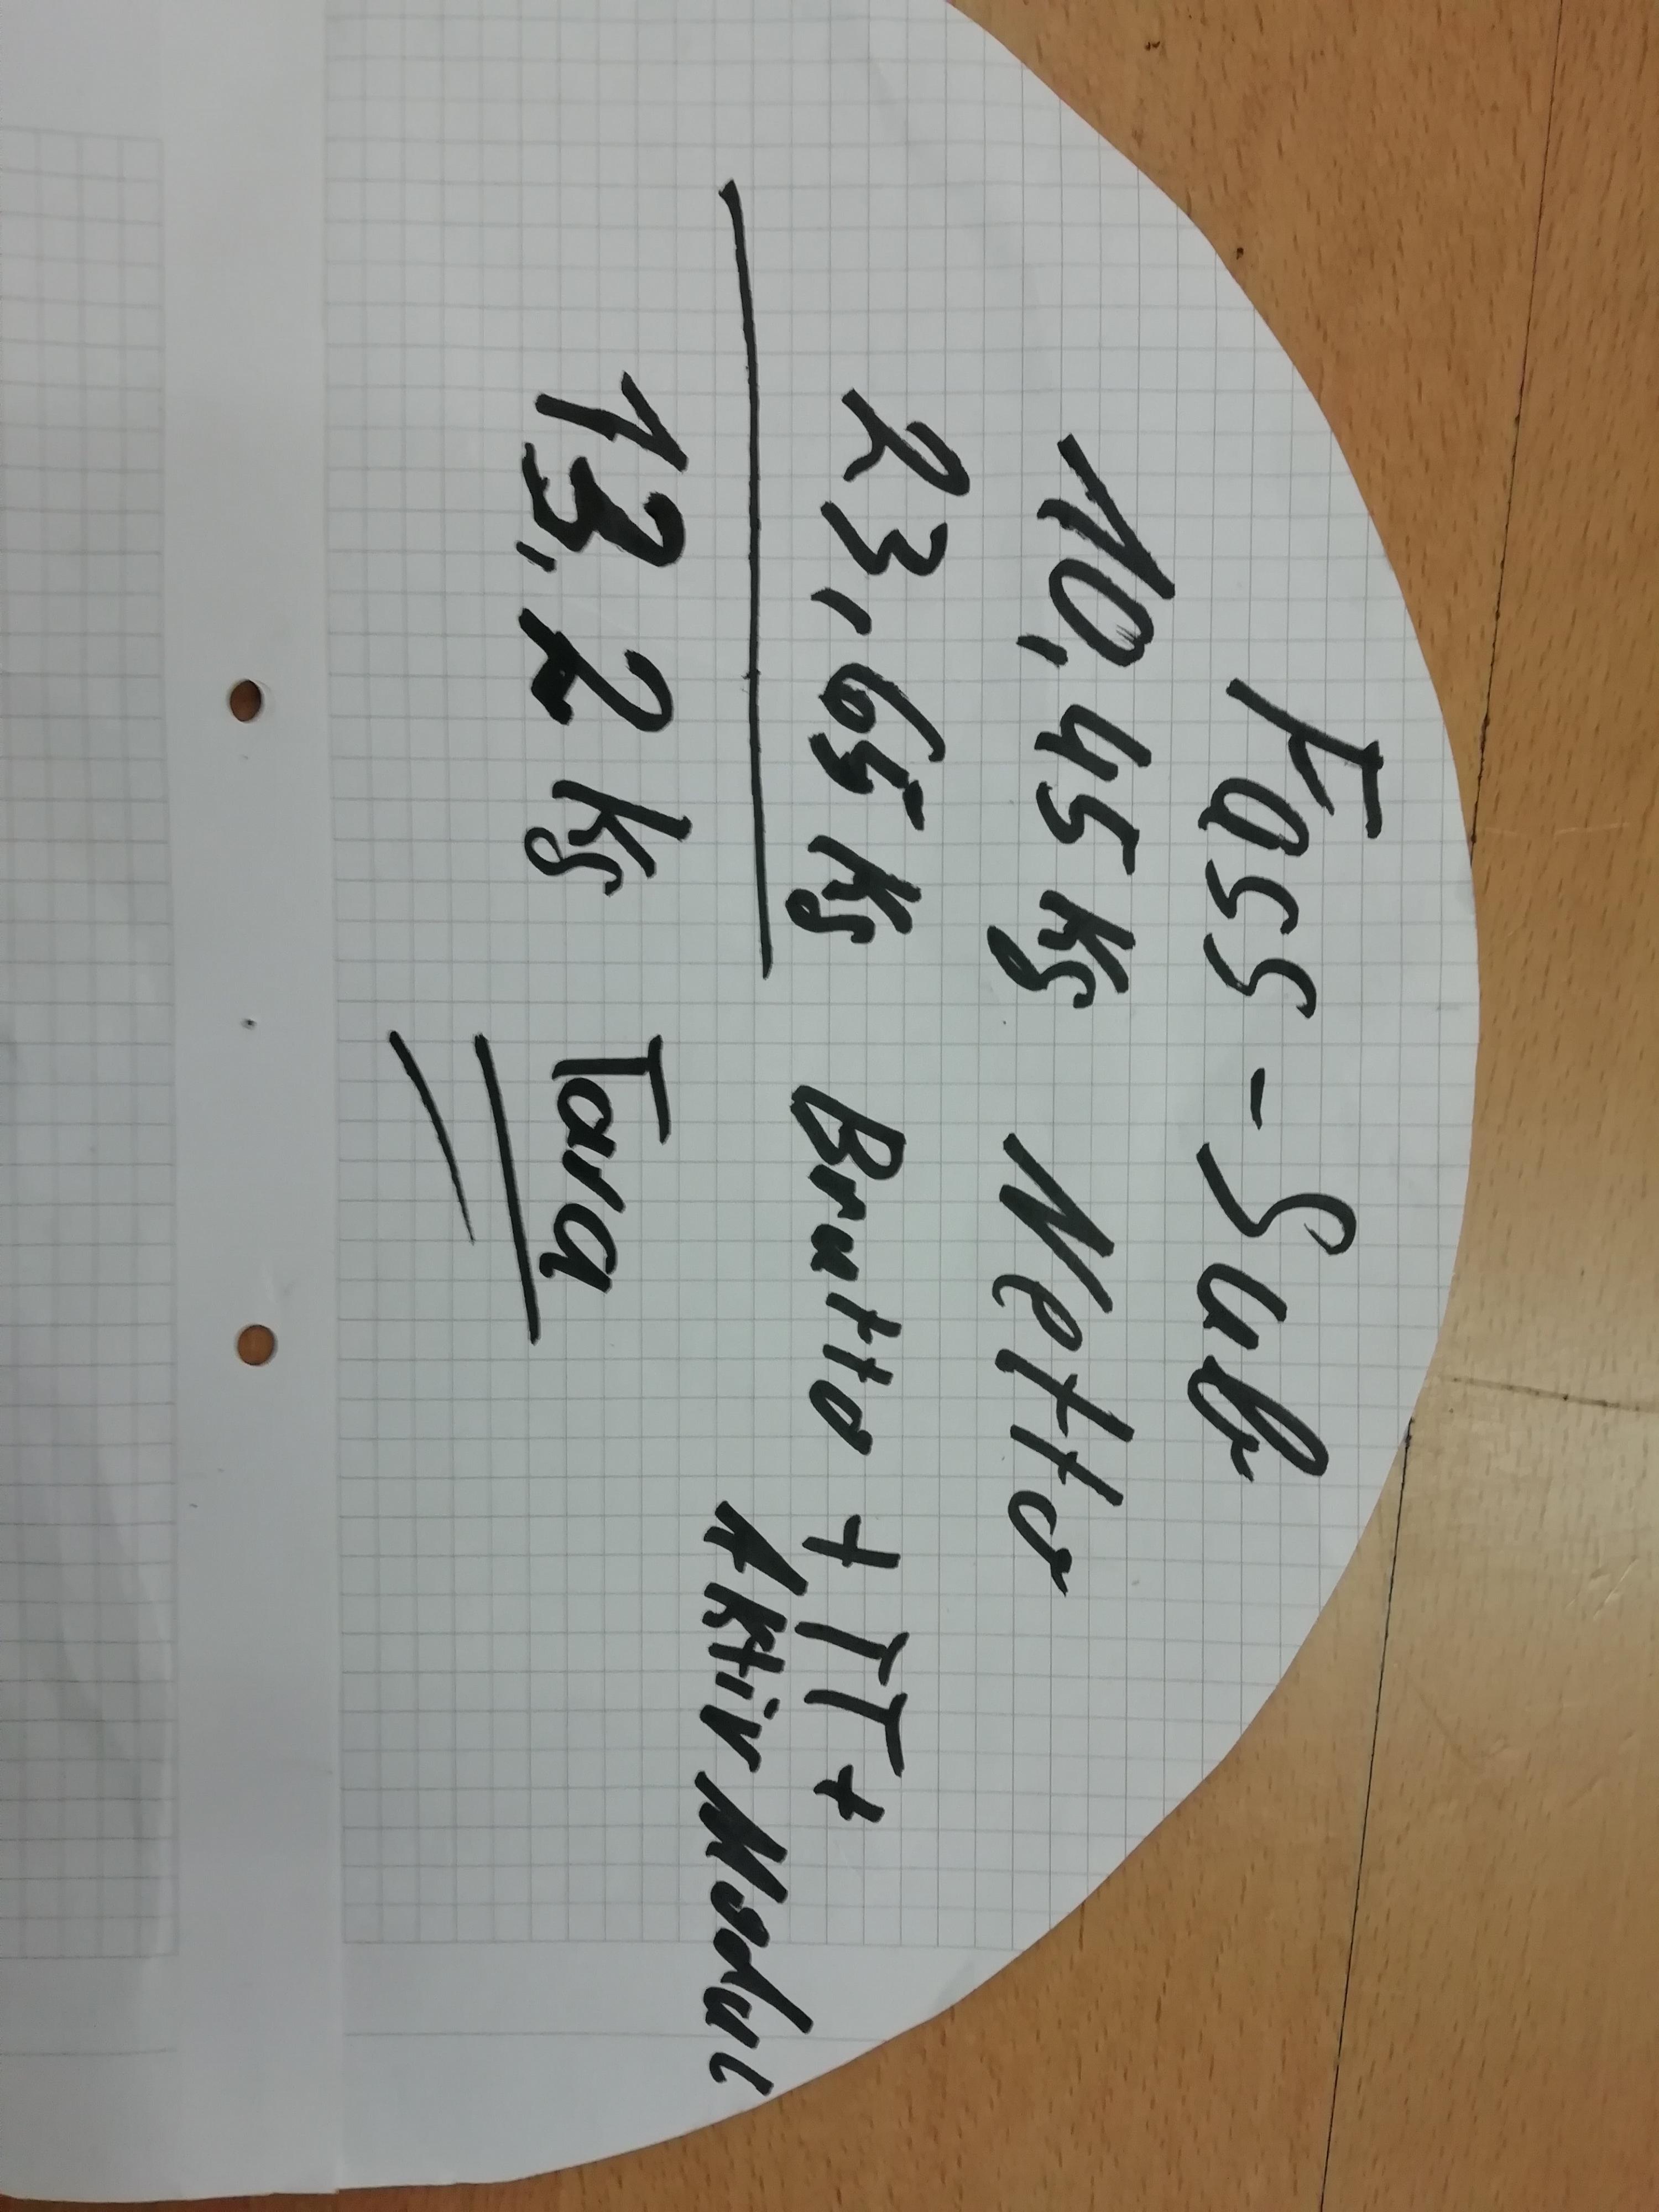 Fass - Sub
10,45 kg Netto
23,65 kg Brutto + TT +
Aktiv Modul
13,2 kg Tara